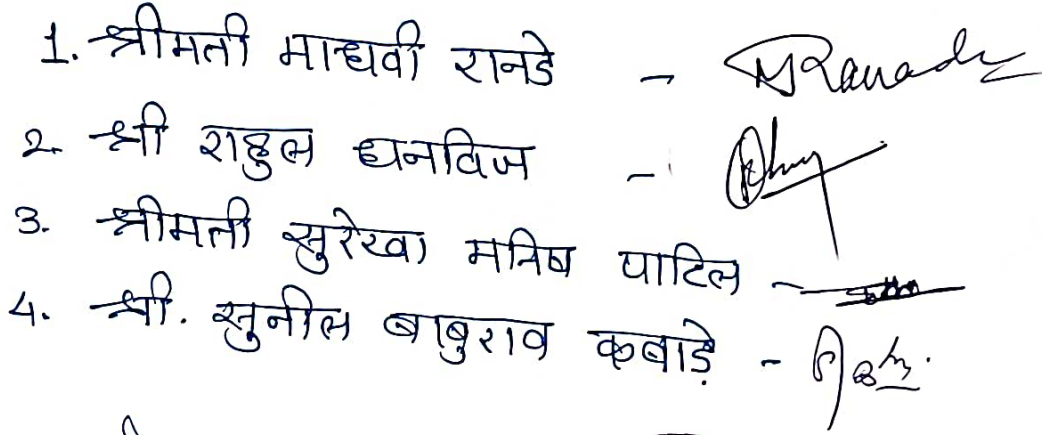 1. श्रीमती माधवी रानडे - MRanade
2. श्री राहुल धनविज -
3. श्रीमती सुरेखा मनिष पाटिल -
4. श्री. सुनील बाबुराव कबाडे -